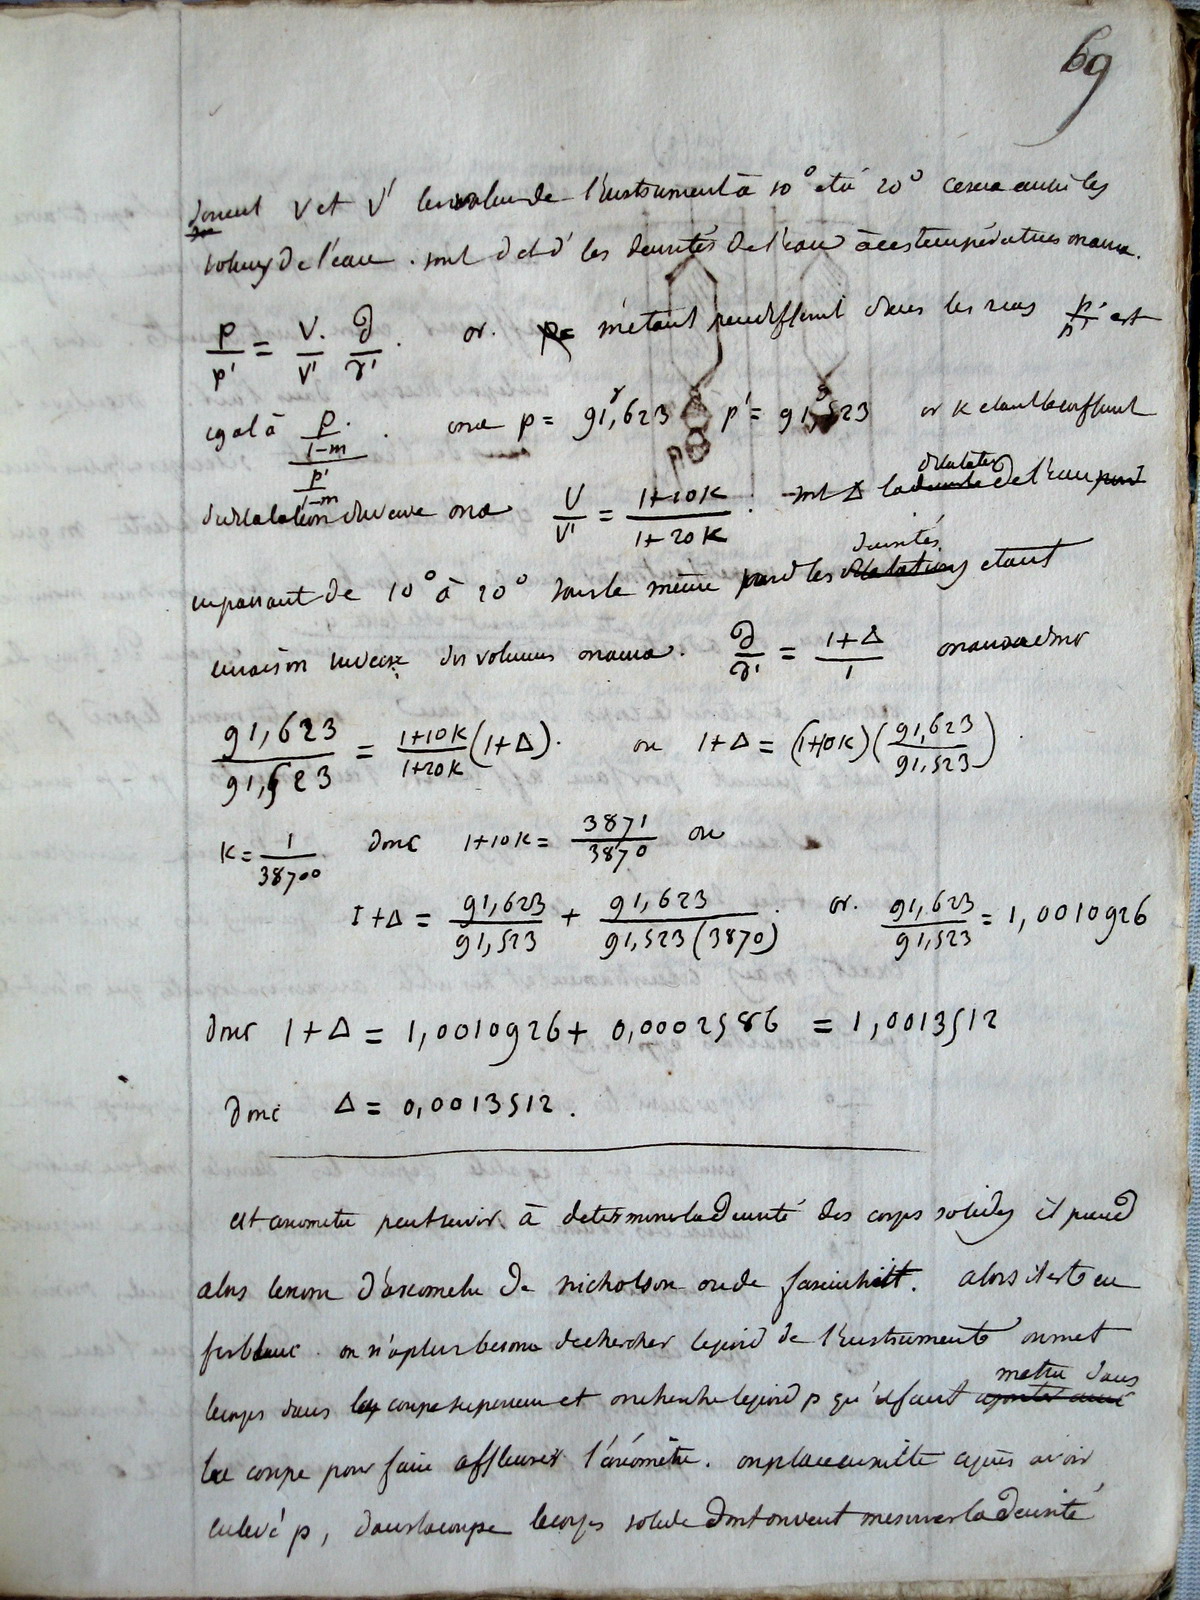 69
soient V et V' les volumes de l'instrument à 10° et à 20° ce sera aussi les
volumes de l'eau. soit d et d' les densités de l'eau à ces températures on aura.
p/p' = V/V' ∂/∂' . or. p= m étant peu différent dans les deux p/p' est
égal à (p/(1-m))/(p'/(1-m)) . on a p = 91,623 p' = 91,523 or K etant le coefficient
de dilatation du verre on a V/V' = (1+10K)/(1+20K) . soit Δ la densité dilatation de l'eau
en passant de 10° à 20° sous le même poid les dilatations densités etant
en raison inverse des volumes on aura. ∂/∂' = (1+Δ)/1 on aura donc
91,623/91,523 = (1+10K)/(1+20K) (1+Δ). ou 1+Δ = (1+10K) (91,623/91,523).
K = 1/38700 donc 1+10K = 3871/3870 ou
1+Δ = 91,623/91,523 + 91,623/91,523(3870) . or. 91,623/91,523 = 1,0010926
donc 1+Δ = 1,0010926 + 0,0002586 = 1,0013512
donc Δ = 0,0013512.
cet areometre peut servir à determiner la densité des corps solides il prend
alors le nom d'areometre de nicholson ou de fareinheitt. alors il est en
ferblanc. on n'a plus besoin de chercher le poid de l'instrument on met
le corps dans la coupe superieure et on cherche le poid p qu'il faut mettre dans
la coupe pour faire affleurer l'aréomètre. on place ensuitte après avoir
enlevé p, dans la coupe le corps solide dont on veut mesurer la densité